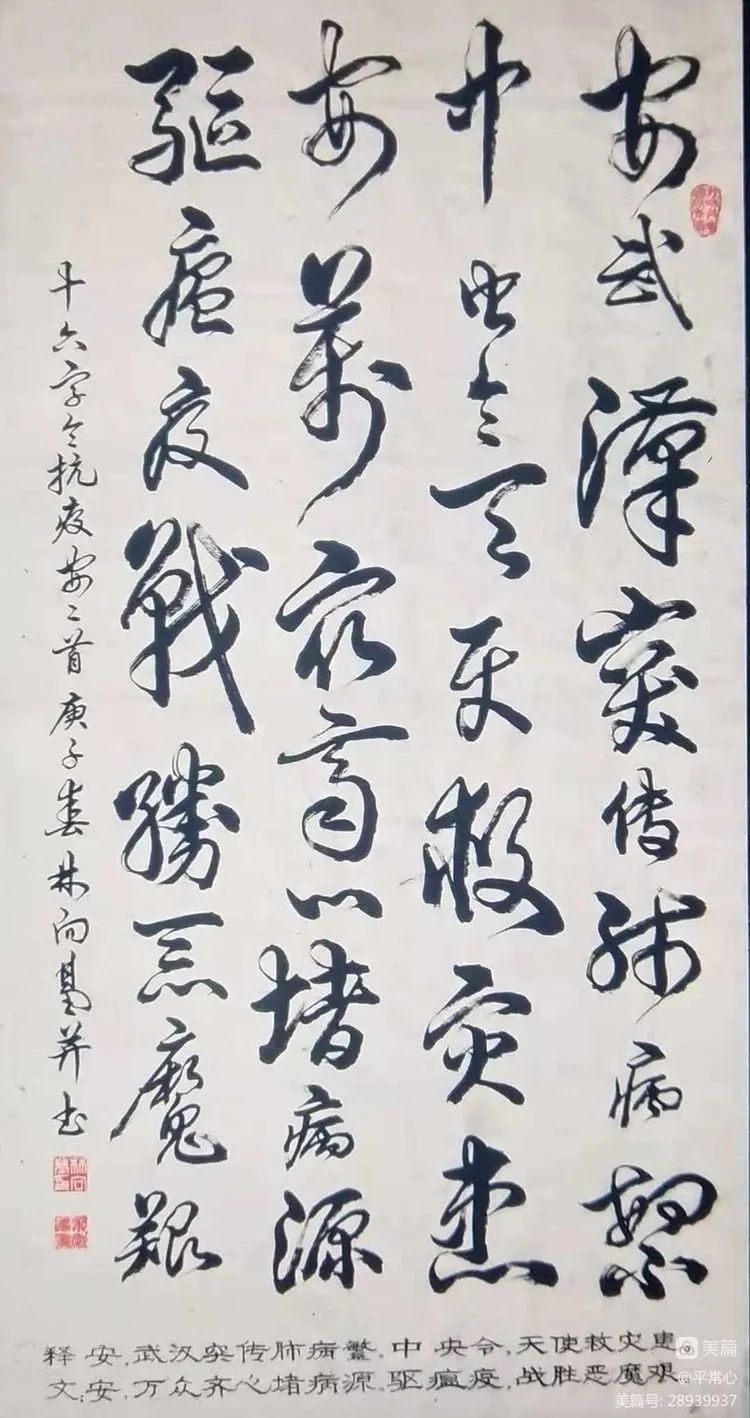 安武漢突传肺病繁
中央令天使救灾患
安萬众齊心堵病源
驅瘟疫戰勝恶魔艱
十六字令抗疫安二首庚子春林向葛并书
释 安,武汉突传肺病繁。中央令,天使救灾患
文:安,万众齐心堵病源。驱瘟疫,战胜恶魔艰
美篇
@平常心
美篇号: 28939937